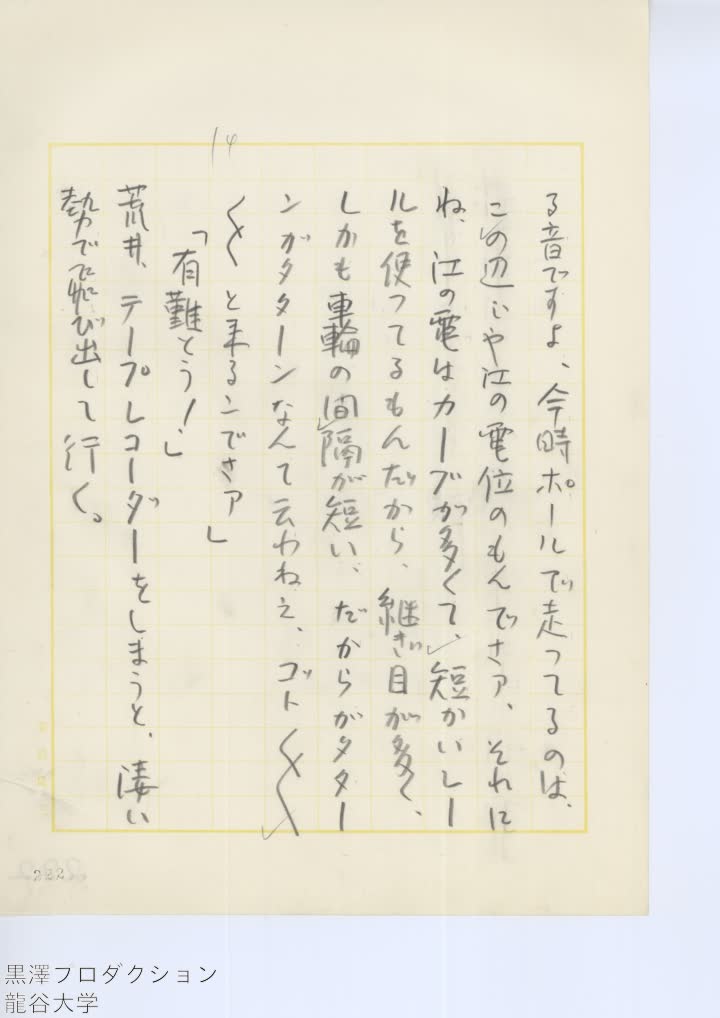 14
る音ですよ、今時ポールで走ってるのは、
この辺じゃ江の電位のもんでさァ、それに
ね、江の電はカーブが多くて、短かいレー
ルを使ってるもんだから、継ぎ目が多く、
しかも車輪の間隔が短い、だからガタター
ンガタターンなんて云わねえ、ゴト〱〱
〱と来るンでさァ」
「有難とう！」
荒井、テープレコーダーをしまうと、凄い
勢で飛び出して行く。
222
黒澤プロダクション
龍谷大学